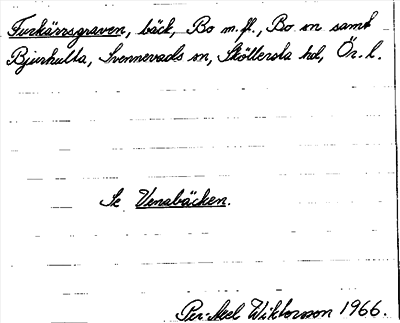 Furkärrsgraven, bäck, Bo m.fl., Bo sn samt
Bjurhulta, Svennevads sn, Sköllersta hd, Ör. l.
Se Venabäcken.
Per-Axel Wiktorsson 1966.